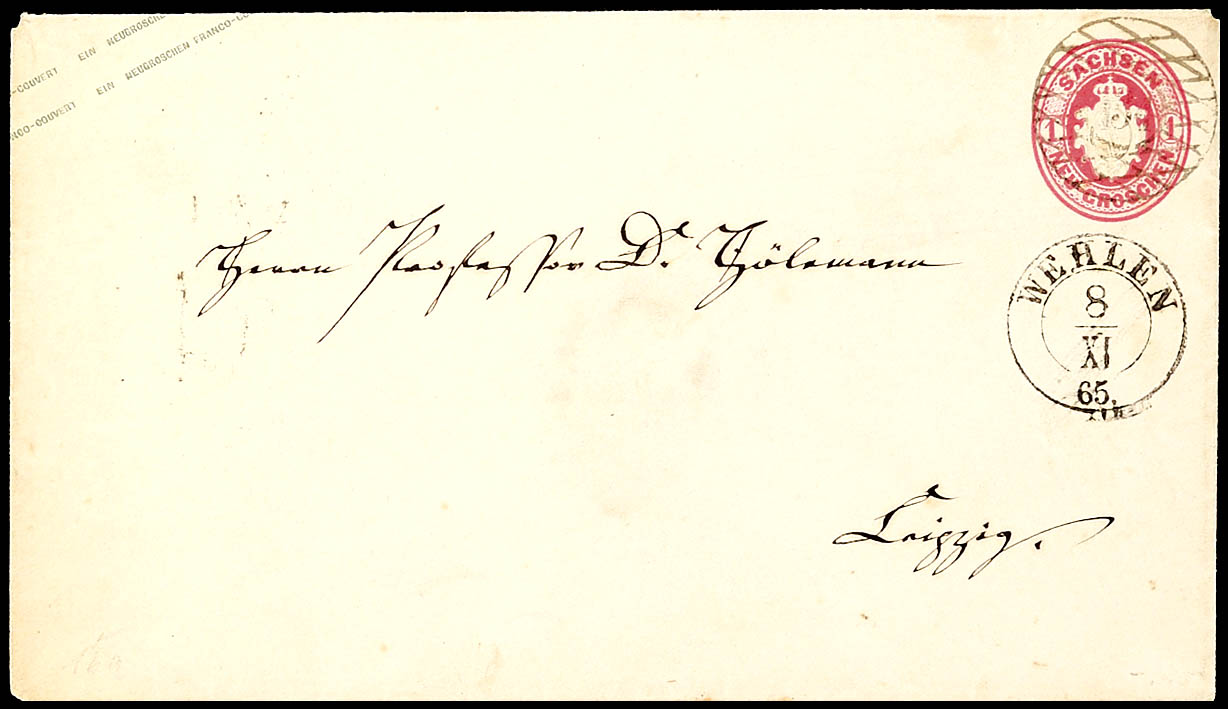 EIN NEUGROSCHEN FRANCO-CO
-COUVERT EIN NEUGROSCHEN FRANCO-CO
NCO-COUVERT
SACHSEN
1 1
NEU-GROSCHEN
Herrn Professor Dr. Hölemann
WEHLEN
8
XI
65.
Leipzig.